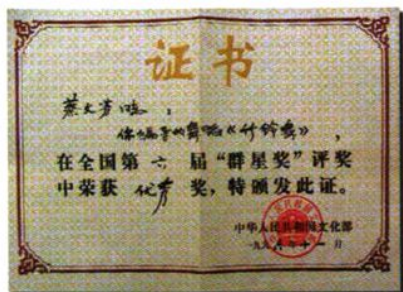 证书
蔡文芳同志：
你编导的舞蹈《竹铃舞》，
在全国第六届“群星奖”评奖
中荣获优秀奖，特颁发此证。
中华人民共和国文化部
一九九 年十一月